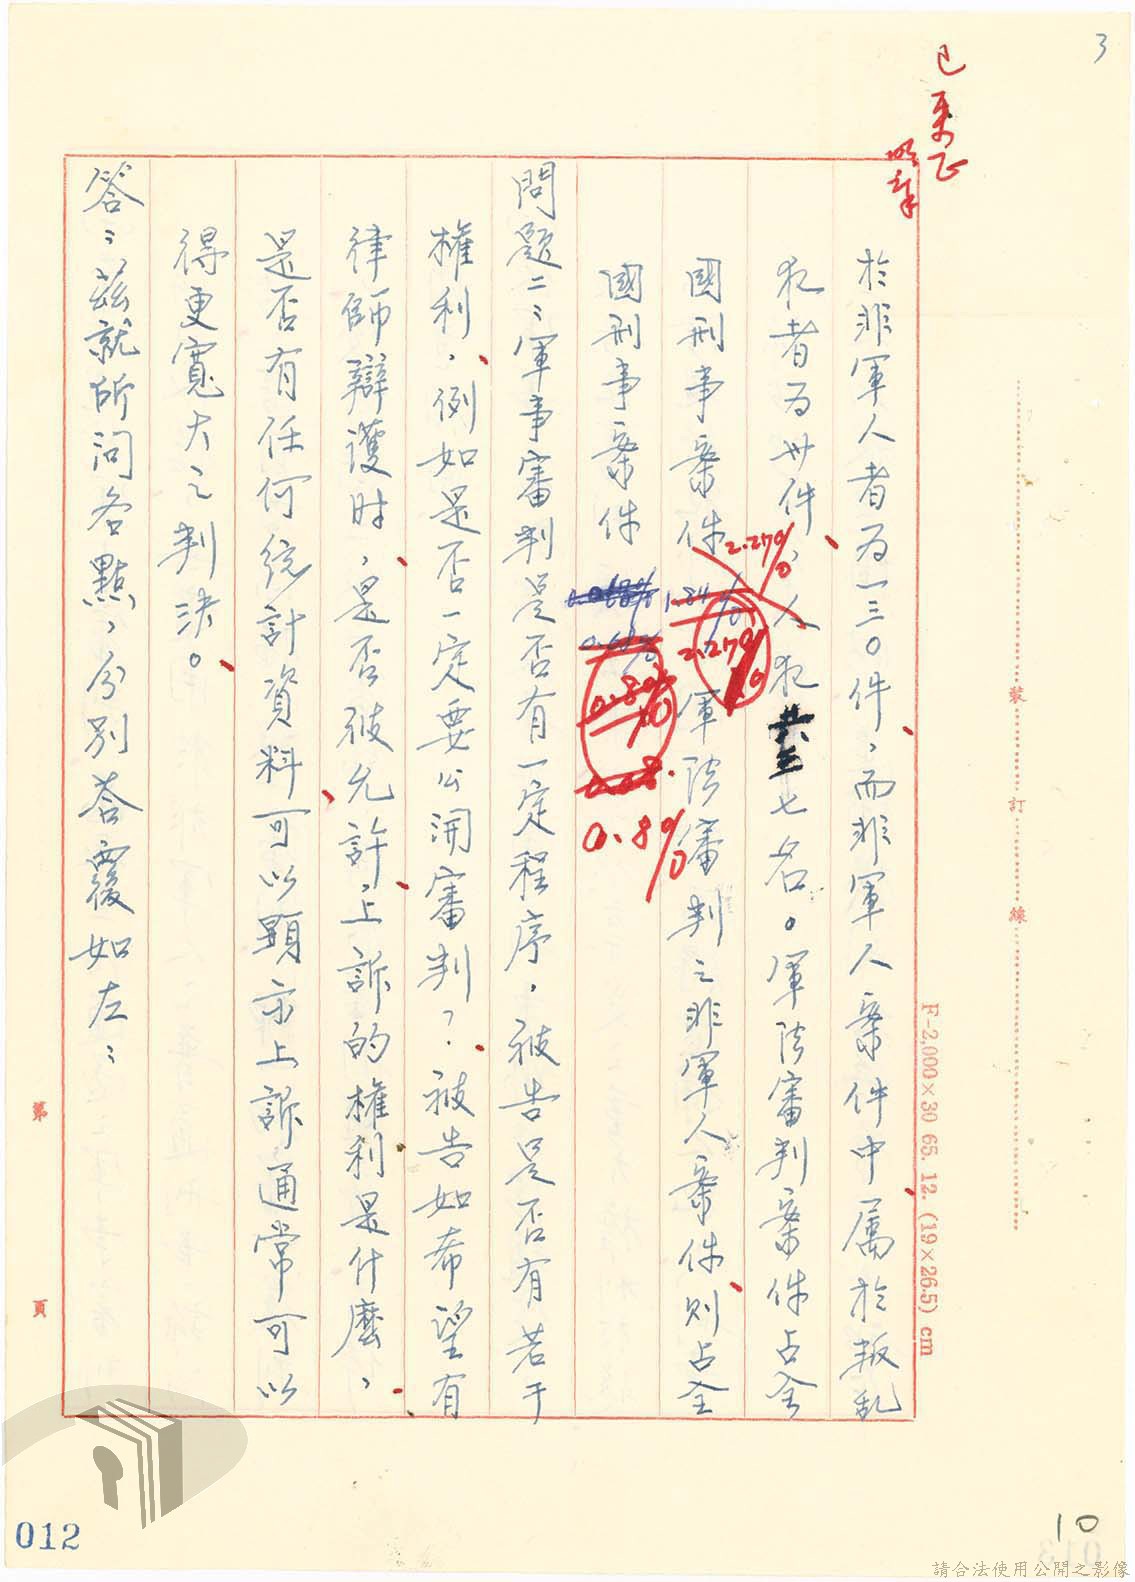 3
已更正
於非軍人者為一三○件，而非軍人案件中屬於叛乱
犯者為卅件，人犯七名。軍法審判案件占全
國刑事案件1.84% 2.27% 2.27%軍法審判之非軍人案件則占全
國刑事案件0.68% 0.8%
問題二：軍事審判是否有一定程序，被告是否有若干
權利，例如是否一定要公開審判？被告如希望有
律師辯護時，是否被允許？上訴的權利是什麼，
是否有任何統計資料可以顯示上訴通常可以
得更寬大之判決。
答：茲就所問各點，分別答覆如左：
裝訂線
F-2,000×30 65.12. (19×26.5) cm
第 頁
012
10
請合法使用公開之影像